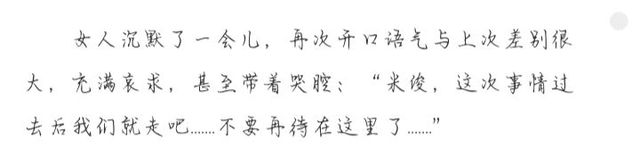 女人沉默了一会儿，再次开口语气与上次差别很
大，充满哀求，甚至带着哭腔：“米俊，这次事情过
去后我们就走吧……不要再待在这里了……”